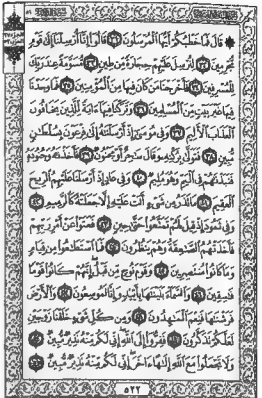 ۞ قَالَ فَمَا خَطْبُكُمْ أَيُّهَا الْمُرْسَلُونَ ﴿٣١﴾ قَالُوا إِنَّا أُرْسِلْنَا إِلَىٰ قَوْمٍ
مُجْرِمِينَ ﴿٣٢﴾ لِنُرْسِلَ عَلَيْهِمْ حِجَارَةً مِنْ طِينٍ ﴿٣٣﴾ مُسَوَّمَةً عِنْدَ رَبِّكَ
لِلْمُسْرِفِينَ ﴿٣٤﴾ فَأَخْرَجْنَا مَنْ كَانَ فِيهَا مِنَ الْمُؤْمِنِينَ ﴿٣٥﴾ فَمَا وَجَدْنَا
فِيهَا غَيْرَ بَيْتٍ مِنَ الْمُسْلِمِينَ ﴿٣٦﴾ وَتَرَكْنَا فِيهَا آيَةً لِلَّذِينَ يَخَافُونَ
الْعَذَابَ الْأَلِيمَ ﴿٣٧﴾ وَفِي مُوسَىٰ إِذْ أَرْسَلْنَاهُ إِلَىٰ فِرْعَوْنَ بِسُلْطَانٍ
مُبِينٍ ﴿٣٨﴾ فَتَوَلَّىٰ بِرُكْنِهِ وَقَالَ سَاحِرٌ أَوْ مَجْنُونٌ ﴿٣٩﴾ فَأَخَذْنَاهُ وَجُنُودَهُ
فَنَبَذْنَاهُمْ فِي الْيَمِّ وَهُوَ مُلِيمٌ ﴿٤٠﴾ وَفِي عَادٍ إِذْ أَرْسَلْنَا عَلَيْهِمُ الرِّيحَ
الْعَقِيمَ ﴿٤١﴾ مَا تَذَرُ مِنْ شَيْءٍ أَتَتْ عَلَيْهِ إِلَّا جَعَلَتْهُ كَالرَّمِيمِ ﴿٤٢﴾
وَفِي ثَمُودَ إِذْ قِيلَ لَهُمْ تَمَتَّعُوا حَتَّىٰ حِينٍ ﴿٤٣﴾ فَعَتَوْا عَنْ أَمْرِ رَبِّهِمْ
فَأَخَذَتْهُمُ الصَّاعِقَةُ وَهُمْ يَنْظُرُونَ ﴿٤٤﴾ فَمَا اسْتَطَاعُوا مِنْ قِيَامٍ
وَمَا كَانُوا مُنْتَصِرِينَ ﴿٤٥﴾ وَقَوْمَ نُوحٍ مِنْ قَبْلُ إِنَّهُمْ كَانُوا قَوْمًا
فَاسِقِينَ ﴿٤٦﴾ وَالسَّمَاءَ بَنَيْنَاهَا بِأَيْدٍ وَإِنَّا لَمُوسِعُونَ ﴿٤٧﴾ وَالْأَرْضَ
فَرَشْنَاهَا فَنِعْمَ الْمَاهِدُونَ ﴿٤٨﴾ وَمِنْ كُلِّ شَيْءٍ خَلَقْنَا زَوْجَيْنِ
لَعَلَّكُمْ تَذَكَّرُونَ ﴿٤٩﴾ فَفِرُّوا إِلَى اللَّهِ إِنِّي لَكُمْ مِنْهُ نَذِيرٌ مُبِينٌ ﴿٥٠﴾
وَلَا تَجْعَلُوا مَعَ اللَّهِ إِلَٰهًا آخَرَ إِنِّي لَكُمْ مِنْهُ نَذِيرٌ مُبِينٌ ﴿٥١﴾
٥٢٢